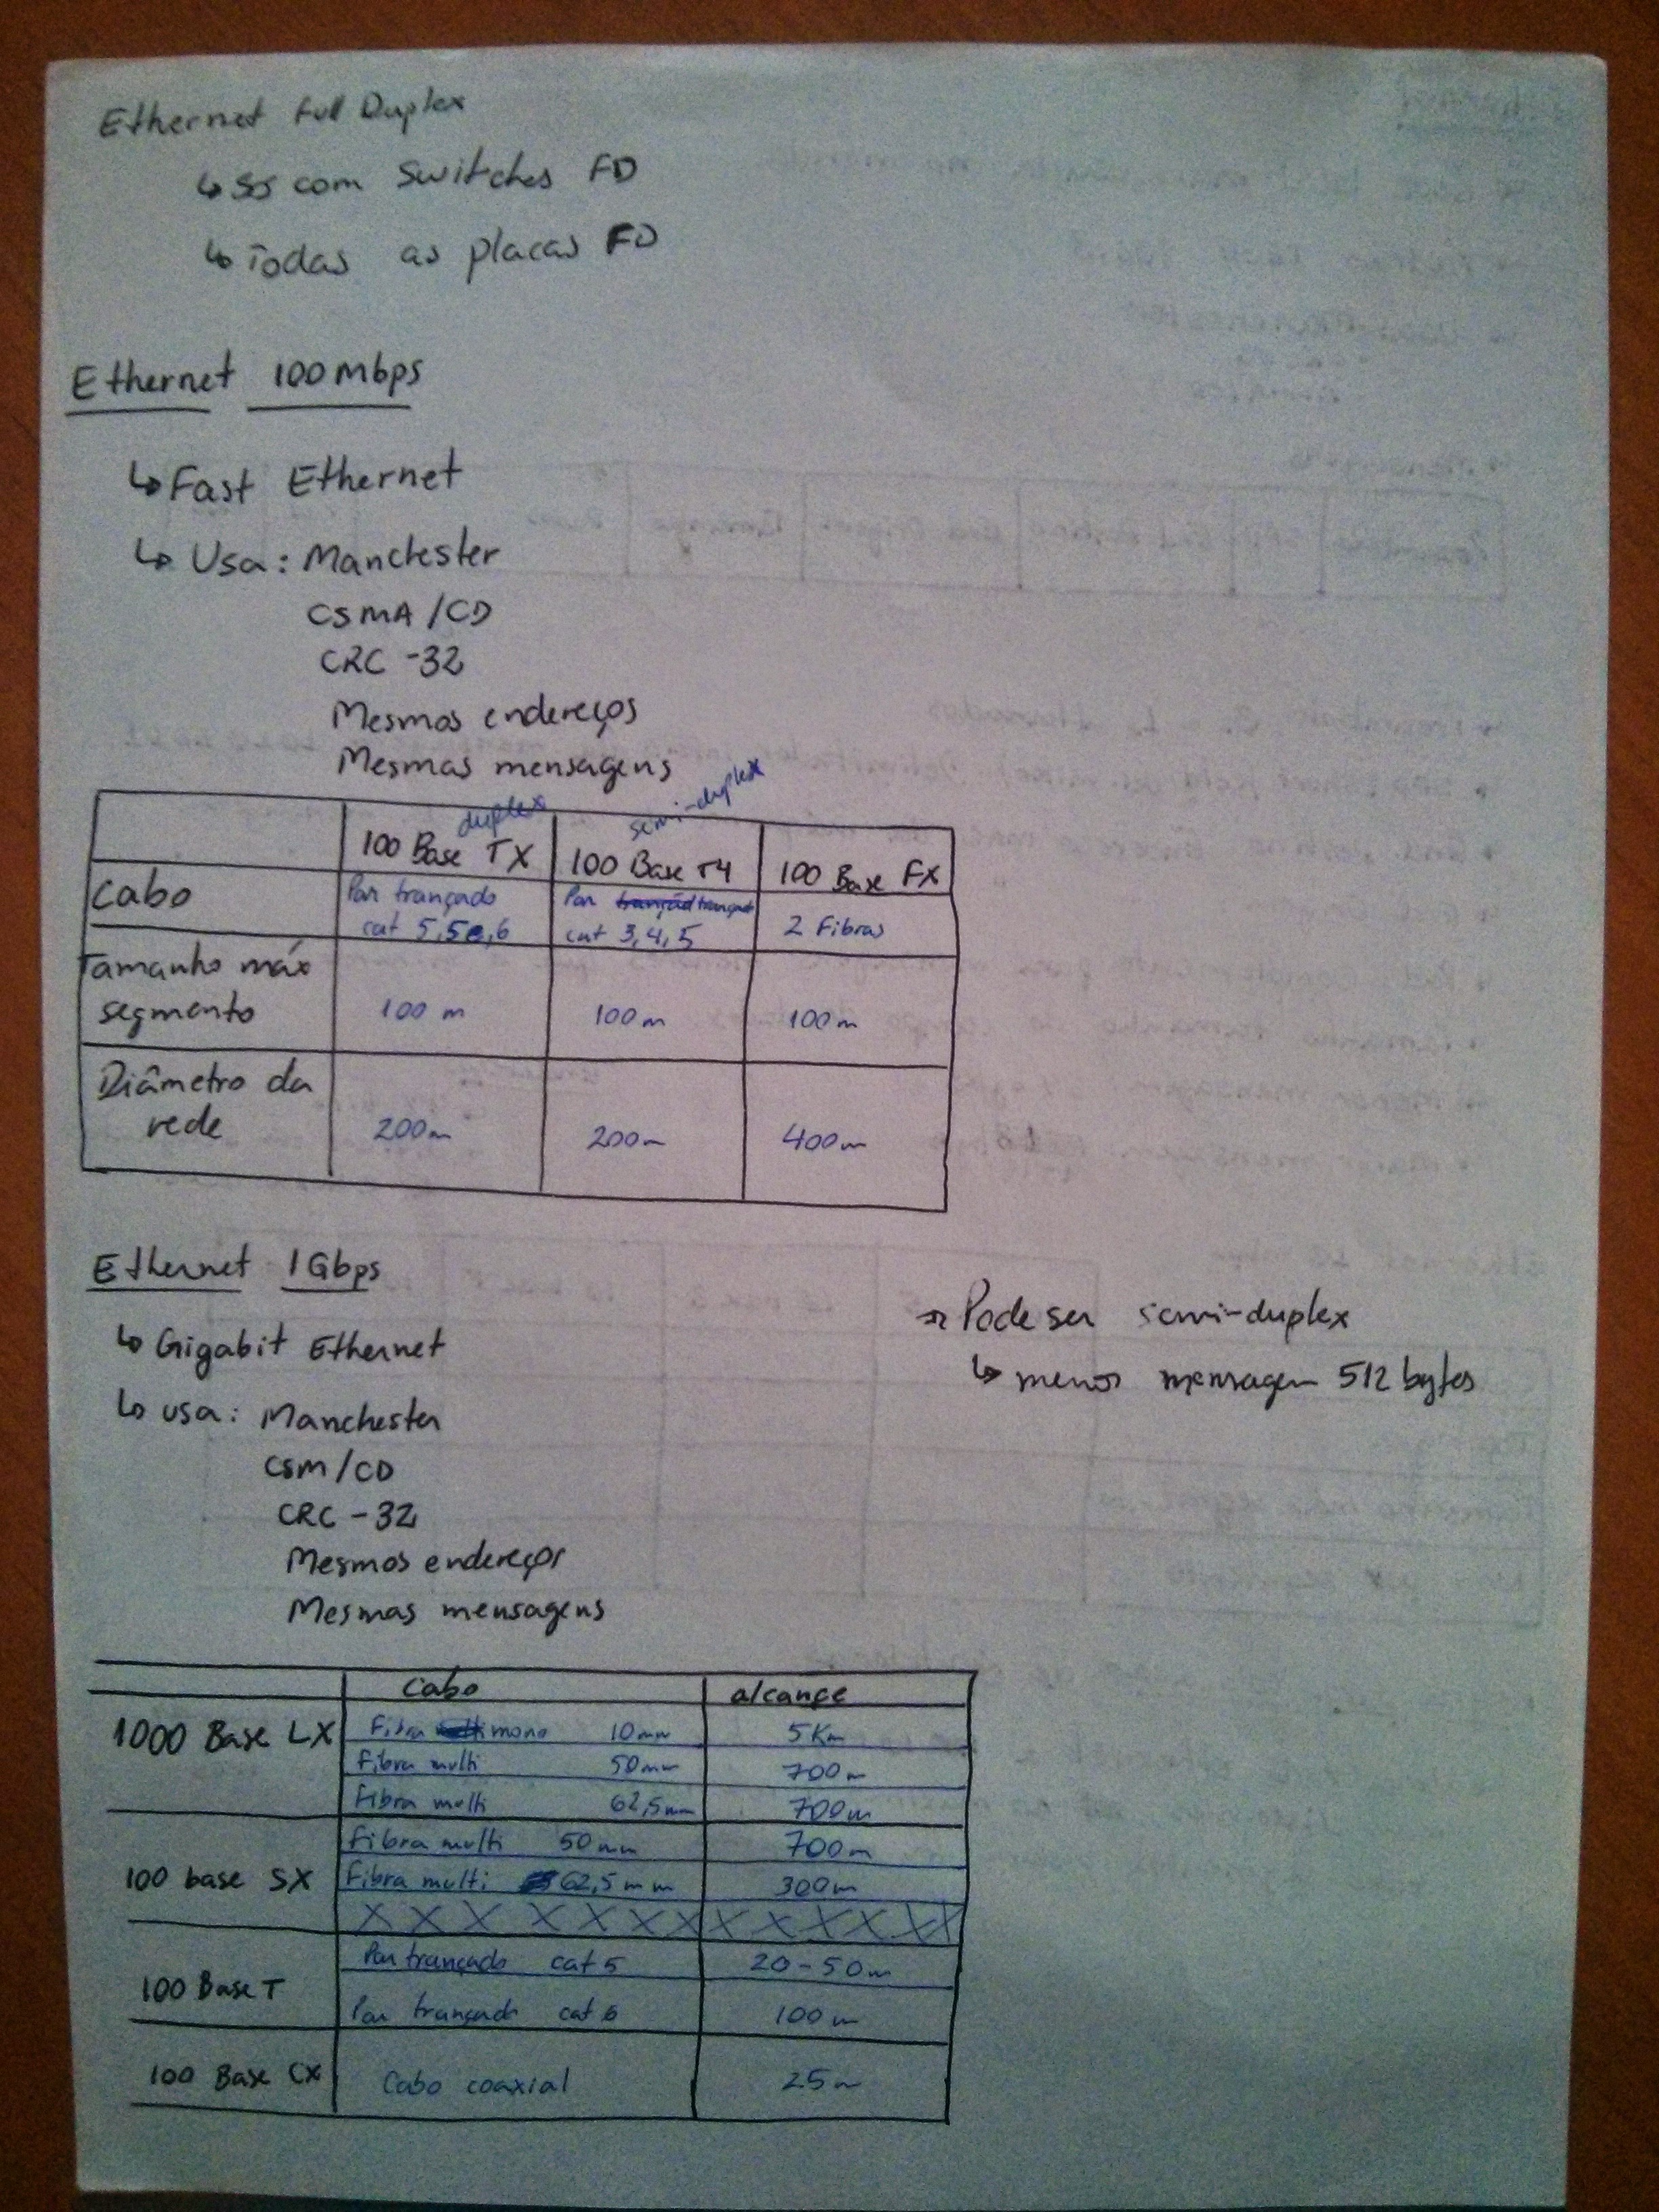 Ethernet Full Duplex
↳ Só com Switches FD
↳ Todas as placas FD
Ethernet 100Mbps
↳ Fast Ethernet
↳ Usa: Manchester
CSMA/CD
CRC-32
Mesmos endereços
Mesmas mensagens
duplex semi-duplex
100 Base TX 100 Base T4 100 Base FX
Cabo Par trançado cat 5,5e,6 Par trançado cat 3,4,5 2 Fibras
Tamanho máx segmento 100 m 100m 100m
Diâmetro da rede 200m 200m 400m
Ethernet 1Gbps
↳ Gigabit Ethernet
↳ usa: Manchester
CSM/CD
CRC-32
Mesmos endereços
Mesmas mensagens
→ Pode ser semi-duplex
↳ menor mensagem 512 bytes
cabo alcance
1000 Base LX Fibra mono 10mm 5Km
Fibra multi 50mm 700m
Fibra multi 62,5mm 700m
100 base SX Fibra multi 50mm 700m
Fibra multi 62,5mm 300m
X X X X X X X X X X X X X
100 Base T Par trançado cat 5 20-50m
Par trançado cat 6 100m
100 Base CX Cabo coaxial 25m